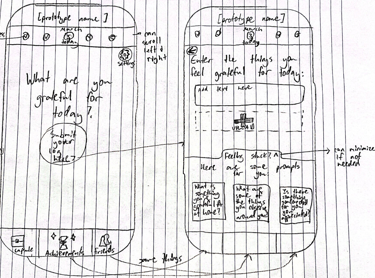 [prototype name]
March
today
can
scroll
left &
right
setting
What are you
grateful for
today?
Submit
your
log
here!
capsule
Achievements
Friends
same things
[prototype name]
March
today
Enter the things you
feel grateful for today:
add text here
upload
Feeling stuck? ^
can minimize
if not
needed
Here are some prompts
for you
What is
something
you're
grateful
at home?
What are
some of
the things
you
around you?
Is there
something
someone
did for
you
appreciated?